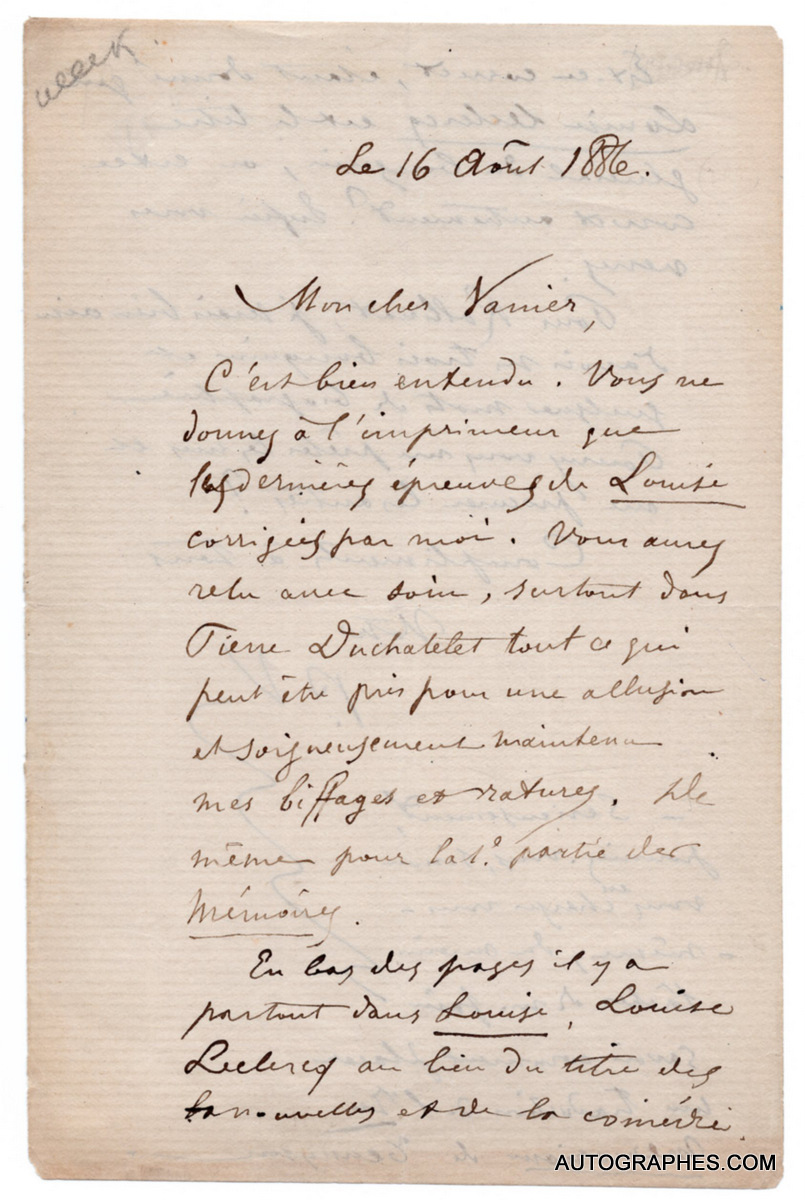 Le 16 Août 1886.
Mon cher Vanier,
C'est bien entendu. Vous ne
donnez à l'imprimeur que
les dernières épreuves de Louise
corrigées par moi. Vous aurez
relu avec soin, surtout dans
Pierre Duchatelet tout ce qui
peut être pris pour une allusion
et soigneusement maintenu
mes biffages et ratures. De
même pour la 1e. partie des
Mémoires.
En bas des pages il y a
partout dans Louise, Louise
Leclercq au lieu du titre des
nouvelles et de la comédie
AUTOGRAPHES.COM